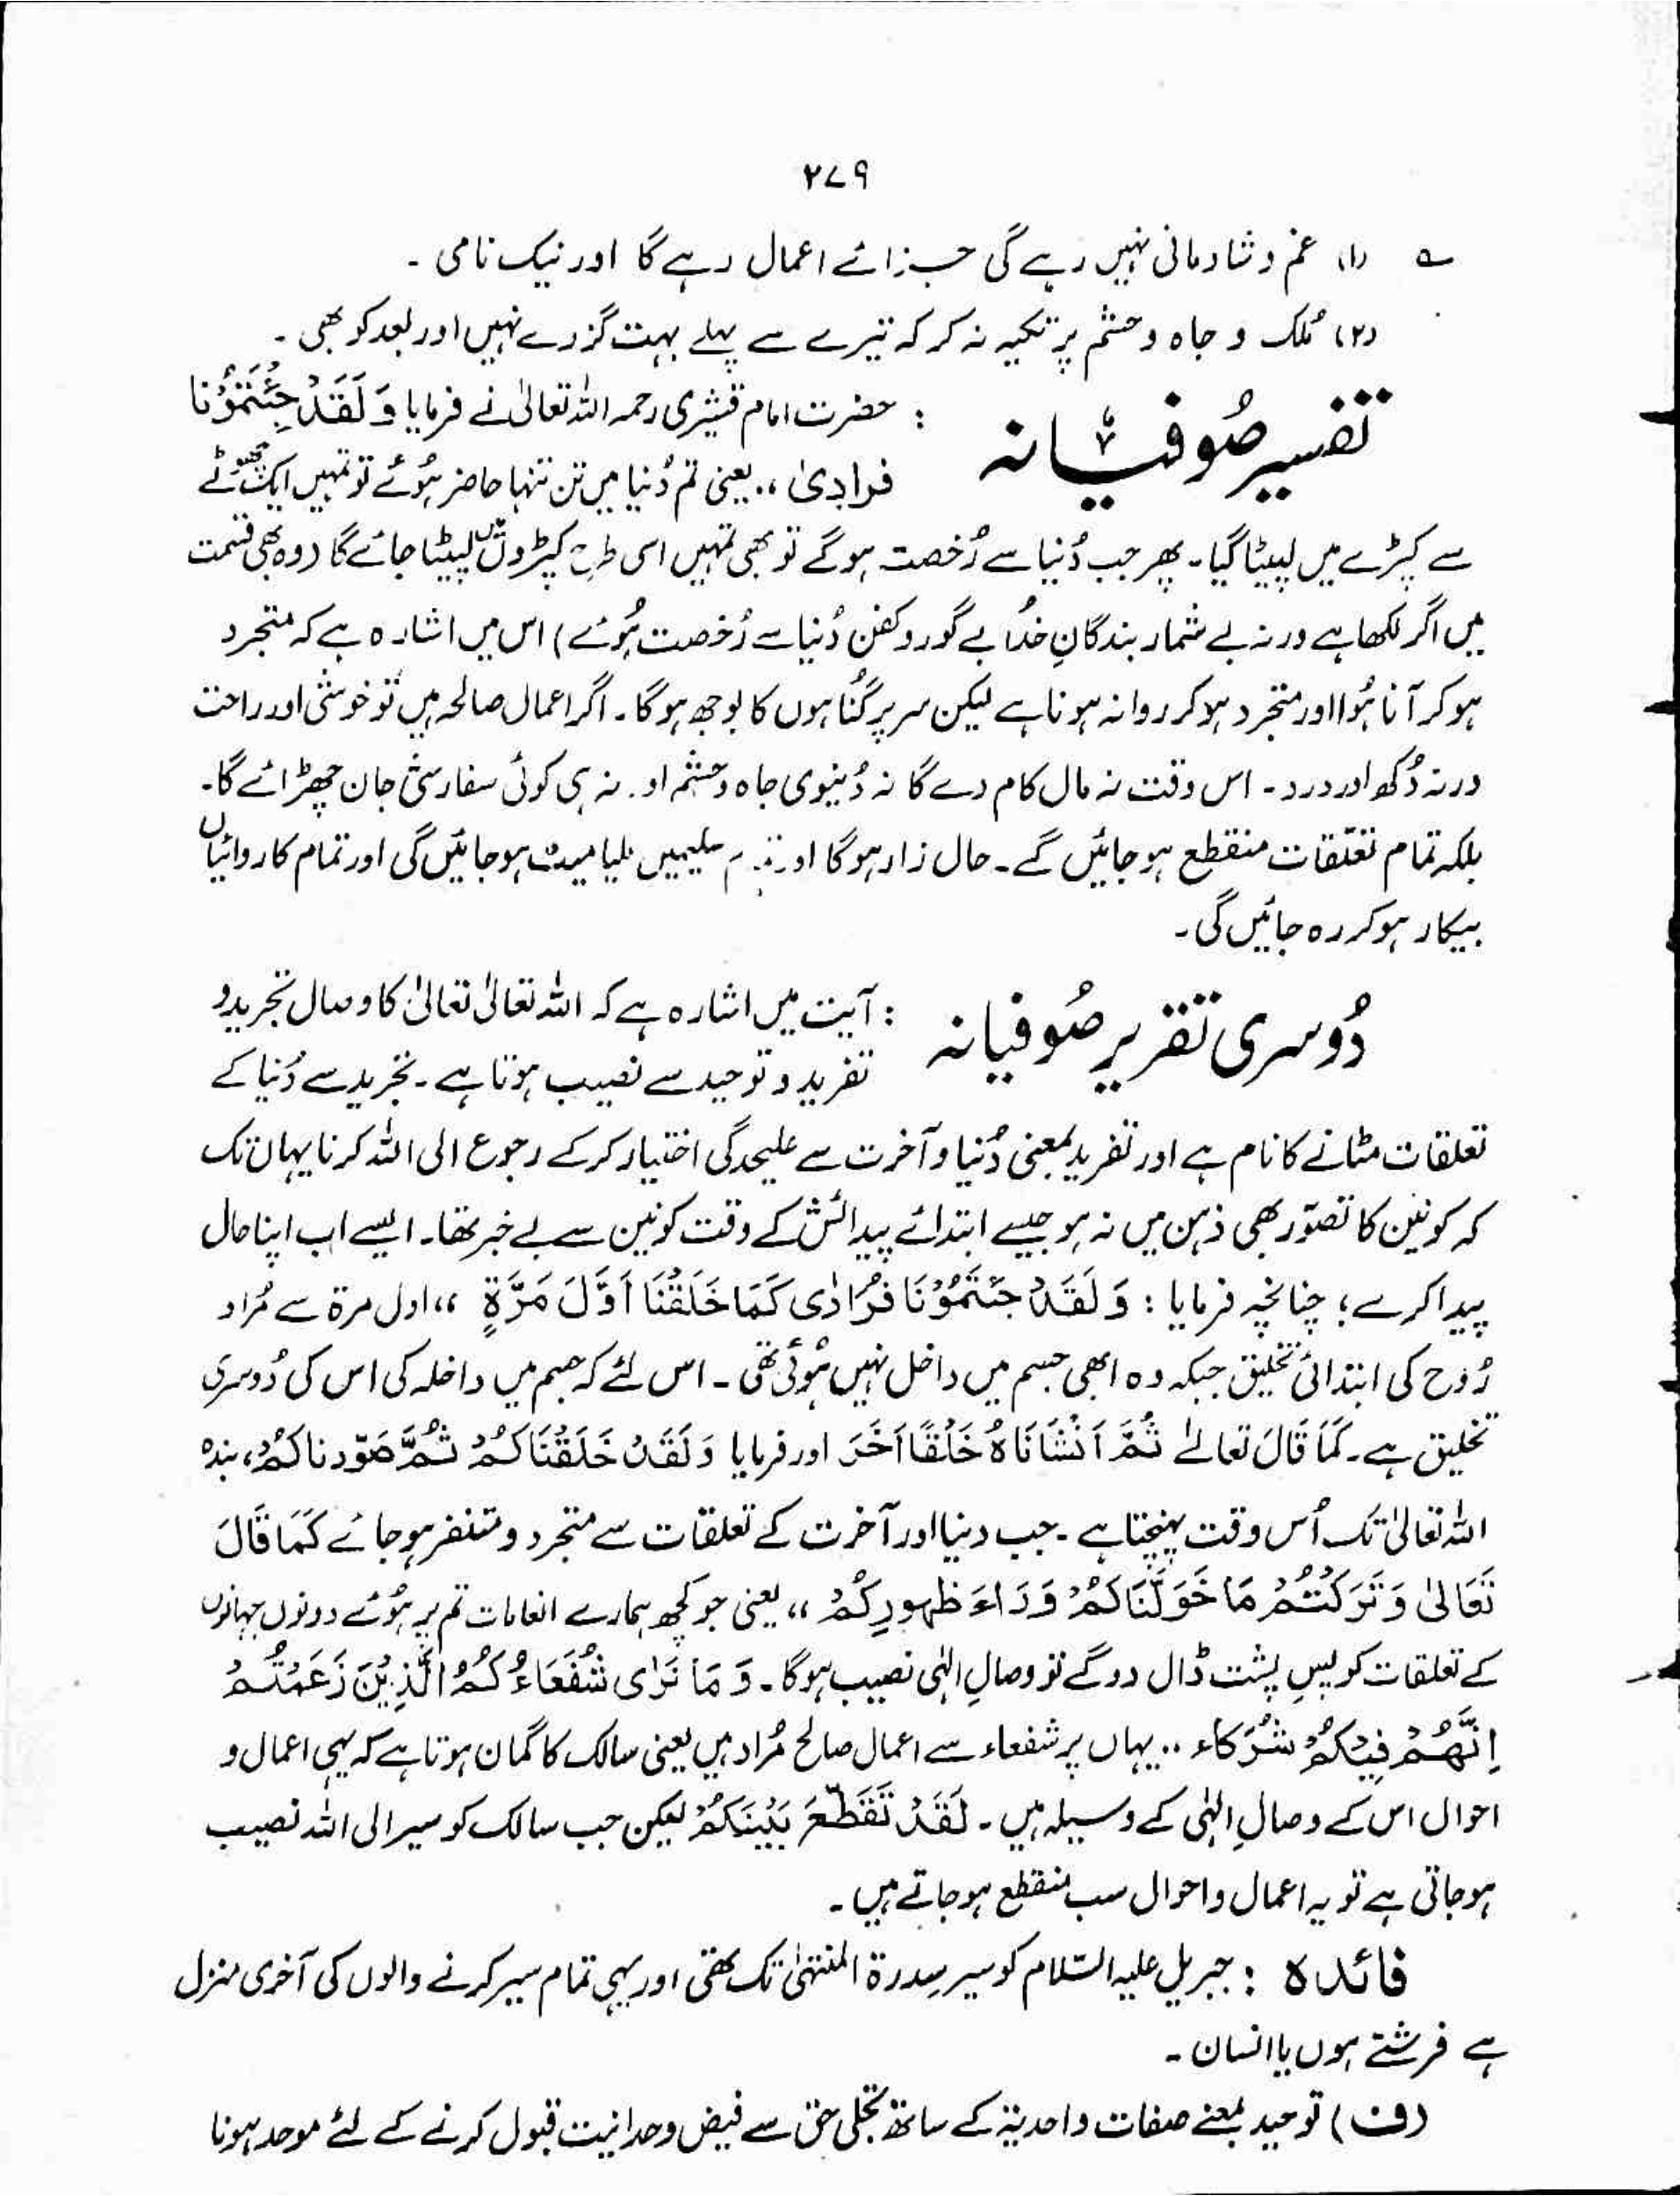 ۲۷۹
ے (۱) غم و شادمانی نہیں رہے گی جزائے اعمال رہے گا اور نیک نامی ۔
(۲) مُلک و جاہ و حشم پر تکیہ نہ کر کہ تیرے سے پہلے بہت گزرے نہیں اور بعد کو بھی ۔
تفسیر صُوفیانہ : حضرت امام قشیری رحمہ اللہ تعالیٰ نے فرمایا وَلَقَدْ جِئْتُمُوْنَا
فرادیٰ ،، یعنی تم دُنیا میں تن تنہا حاضر ہُوئے تو تمہیں ایک چھوٹے
سے کپڑے میں لپیٹا گیا۔ پھر جب دُنیا سے رُخصت ہو گے تو بھی تمہیں اسی طرح کپڑوں میں لپیٹا جائے گا (وہ بھی قسمت
میں اگر لکھا ہے ورنہ بے شمار بندگانِ خدُا بے گور و کفن دُنیا سے رُخصت ہُوئے) اس میں اشارہ ہے کہ متجرد
ہو کر آنا ہُوا اور متجرد ہو کر روانہ ہونا ہے لیکن سر پر گُناہوں کا بوجھ ہو گا۔ اگر اعمال صالحہ ہیں تو خوشی اور راحت
ورنہ دُکھ اور درد ۔ اس وقت نہ مال کام دے گا نہ دُنیوی جاہ و حشم اور نہ ہی کوئی سفارشی جان چھڑائے گا۔
بلکہ تمام تعلّقات منقطع ہو جائیں گے۔ حال زار ہو گا اور سلیمیں ملیا میٹ ہو جائیں گی اور تمام کاروائیاں
بیکار ہو کر رہ جائیں گی۔
دُوسری تقریر صُوفیانہ : آیت میں اشارہ ہے کہ اللہ تعالیٰ تعالیٰ کا وصال تجرید و
تفرید و توحید سے نصیب ہوتا ہے ۔ تجرید سے دُنیا کے
تعلقات مٹانے کا نام ہے اور تفرید بمعنی دُنیا و آخرت سے علیحدگی اختیار کر کے رجوع الی اللہ کرنا یہاں تک
کہ کونین کا تصوّر بھی ذہن میں نہ ہو جیسے ابتدائے پیدائش کے وقت کونین سے بے خبر تھا۔ ایسے اب اپنا حال
پیدا کرے؛ چنانچہ فرمایا : وَلَقَدْ جِئْتُمُوْنَا فُرَادٰی کَمَا خَلَقْنَا اَوَّلَ مَرَّۃٍ ،، اول مرۃ سے مُراد
رُوح کی ابتدائی تخلیق جبکہ وہ ابھی جسم میں داخل نہیں ہُوئی تھی ۔ اس لئے کہ جسم میں داخلہ کی اس کی دُوسری
تخلیق ہے ۔ کَمَا قَالَ تعالےٰ ثُمَّ اَنْشَانَاہُ خَلْقًا اٰخَرَ اور فرمایا وَلَقَدْ خَلَقْنَاکُمْ ثُمَّ صَوّرناکُمْ، بندہ
اللہ تعالیٰ تک اُس وقت پہنچتا ہے ۔ جب دنیا اور آخرت کے تعلقات سے متجرد و متنفر ہو جائے کَمَا قَالَ
تَعَالیٰ وَتَرَکْتُمْ مَا خَوَلَّنَاکُمْ وَرَاءَ ظہورِکُمْ ،، یعنی جو کچھ ہمارے انعامات تم پر ہُوئے دونوں جہانوں
کے تعلقات کو پسِ پشت ڈال دو گے تو وصالِ الہٰی نصیب ہو گا ۔ وَمَا نَرٰی شُفَعَاءَکُمُ الَّذِیْنَ زَعَمْتُمْ
اِنَّھُمْ فِیْکُمْ شُرَکَاء ،، یہاں پر شفعاء سے اعمال صالح مُراد ہیں یعنی سالک کا گمان ہوتا ہے کہ یہی اعمال و
احوال اس کے وصالِ الہٰی کے وسیلہ ہیں ۔ لَقَدْ تَقَطَّعَ بَیْنَکُمْ لیکن جب سالک کو سیر الی اللہ نصیب
ہو جاتی ہے تو یہ اعمال و احوال سب منقطع ہو جاتے ہیں ۔
فائدہ : جبریل علیہ السّلام کو سیر سِدرۃ المنتہیٰ تک تھی اور یہی تمام سیر کرنے والوں کی آخری منزل
ہے فرشتے ہوں یا انسان ۔
(ف) توحید بمعنے صفات واحدیۃ کے ساتھ تجلی حق سے فیض وحدانیت قبول کرنے کے لئے موحد ہونا